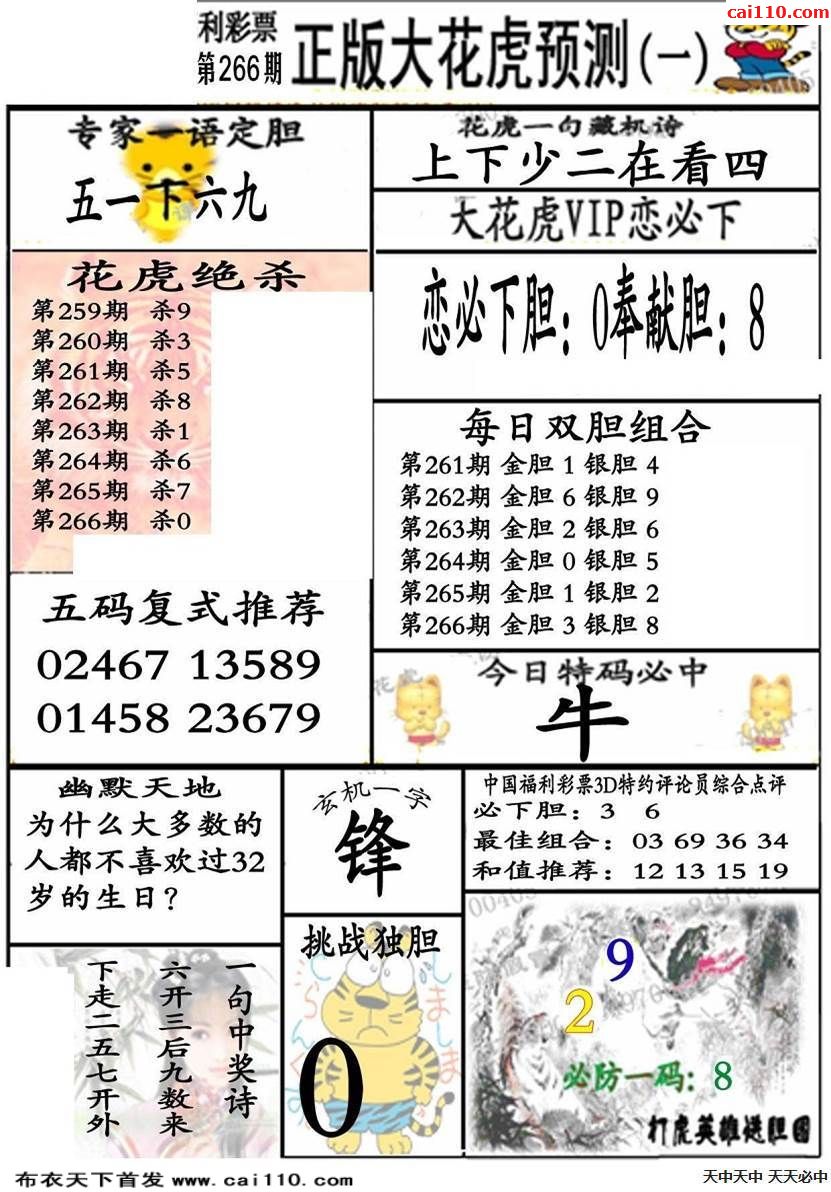 cai110.com
利彩票
第266期
正版大花虎预测(一)
专家一语定胆
五一下六九
花虎一句藏机诗
上下少二在看四
大花虎VIP恋必下
恋必下胆：0奉献胆：8
花虎绝杀
第259期 杀9
第260期 杀3
第261期 杀5
第262期 杀8
第263期 杀1
第264期 杀6
第265期 杀7
第266期 杀0
每日双胆组合
第261期 金胆 1 银胆 4
第262期 金胆 6 银胆 9
第263期 金胆 2 银胆 6
第264期 金胆 0 银胆 5
第265期 金胆 1 银胆 2
第266期 金胆 3 银胆 8
五码复式推荐
02467 13589
01458 23679
今日特码必中
牛
幽默天地
为什么大多数的
人都不喜欢过32
岁的生日？
玄机一字
锋
中国福利彩票3D特约评论员综合点评
必下胆：3 6
最佳组合：03 69 36 34
和值推荐：12 13 15 19
一句中奖诗
六开三后九数来
下走二五七开外
挑战独胆
0
9
2
必防一码：8
打虎英雄送胆图
布衣天下首发 www.cai110.com
天中天中 天天必中